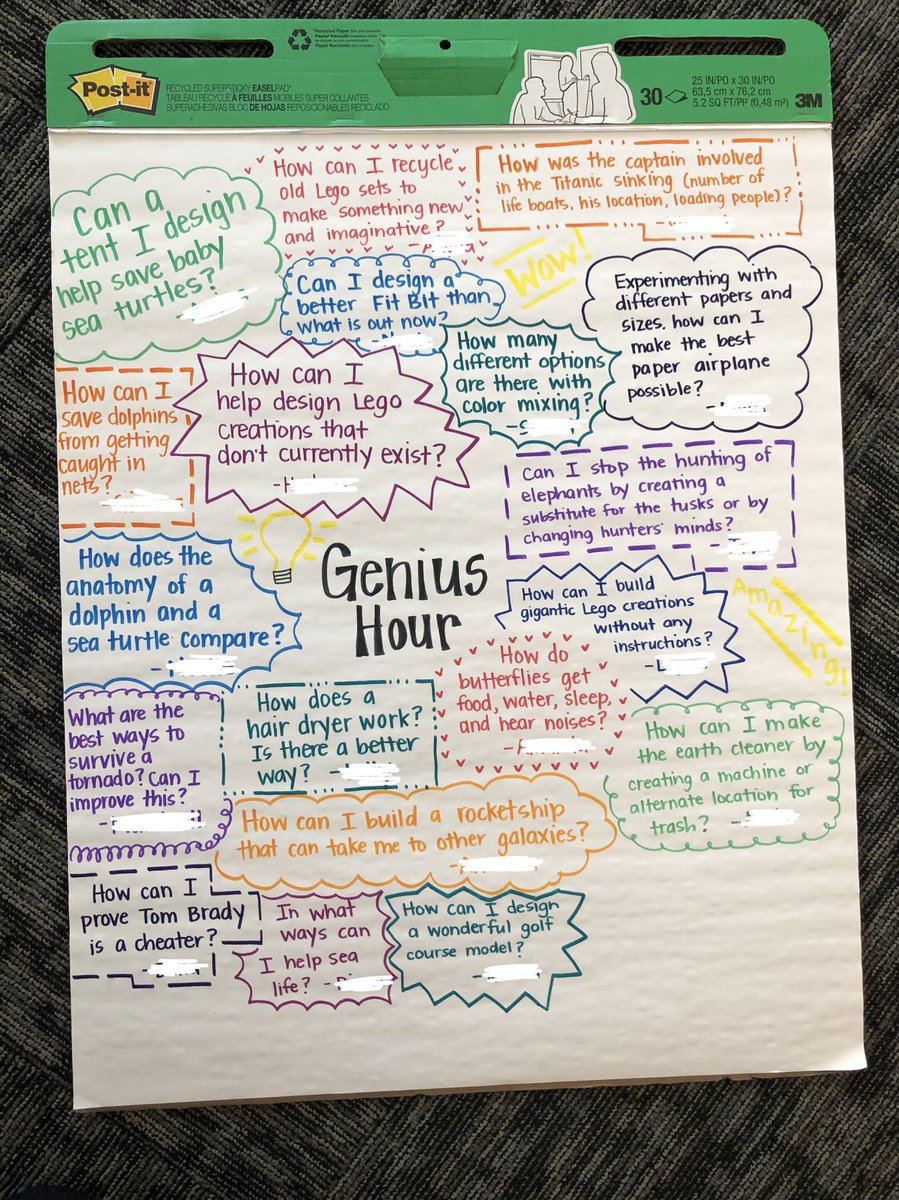 *Recycled Paper
Papier Recyclé
Papel Reciclado
Post-it
RECYCLED SUPERSTICKY EASELPAD*
TABLEAU RECYCLÉ À FEUILLES MOBILES SUPER COLLANTES
SUPERADHESIVAS BLOC DE HOJAS REPOSICIONABLES RECICLADO
30
25 IN/PO x 30 IN/PO
63,5 cm x 76,2 cm
5.2 SQ FT/PI² (0,48 m²)
3M
Can a
tent I design
help save baby
sea turtles?
How can I recycle
old Lego sets to
make something new
and imaginative?
How was the captain involved
in the Titanic sinking (number of
life boats, his location, loading people)?
WOW!
Can I design a
better Fit Bit than
what is out now?
Experimenting with
different papers and
sizes, how can I
make the best
paper airplane
possible?
How many
different options
are there with
color mixing?
How can I
save dolphins
from getting
caught in
nets?
How can I
help design Lego
creations that
don't currently exist?
Can I stop the hunting of
elephants by creating a
substitute for the tusks or by
changing hunters' minds?
Genius
Hour
How does the
anatomy of a
dolphin and a
sea turtle compare?
How can I build
gigantic Lego creations
without any
instructions?
Amazing!
How do
butterflies get
food, water, sleep,
and hear noises?
What are the
best ways to
survive a
tornado? Can I
improve this?
How does a
hair dryer work?
Is there a better
way?
How can I make
the earth cleaner by
creating a machine or
alternate location for
trash?
How can I build a rocketship
that can take me to other galaxies?
How can I
prove Tom Brady
is a cheater?
In what
ways can
I help sea
life?
How can I design
a wonderful golf
course model?